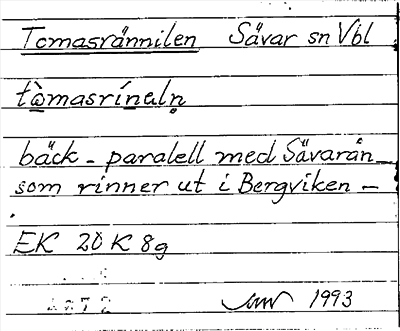 Tomasrännilen Sävar sn Vbl
tò̠masrín̠aln̥
bäck - paralell med Sävarån
som rinner ut i Bergviken -
EK 20 K 8g
1993